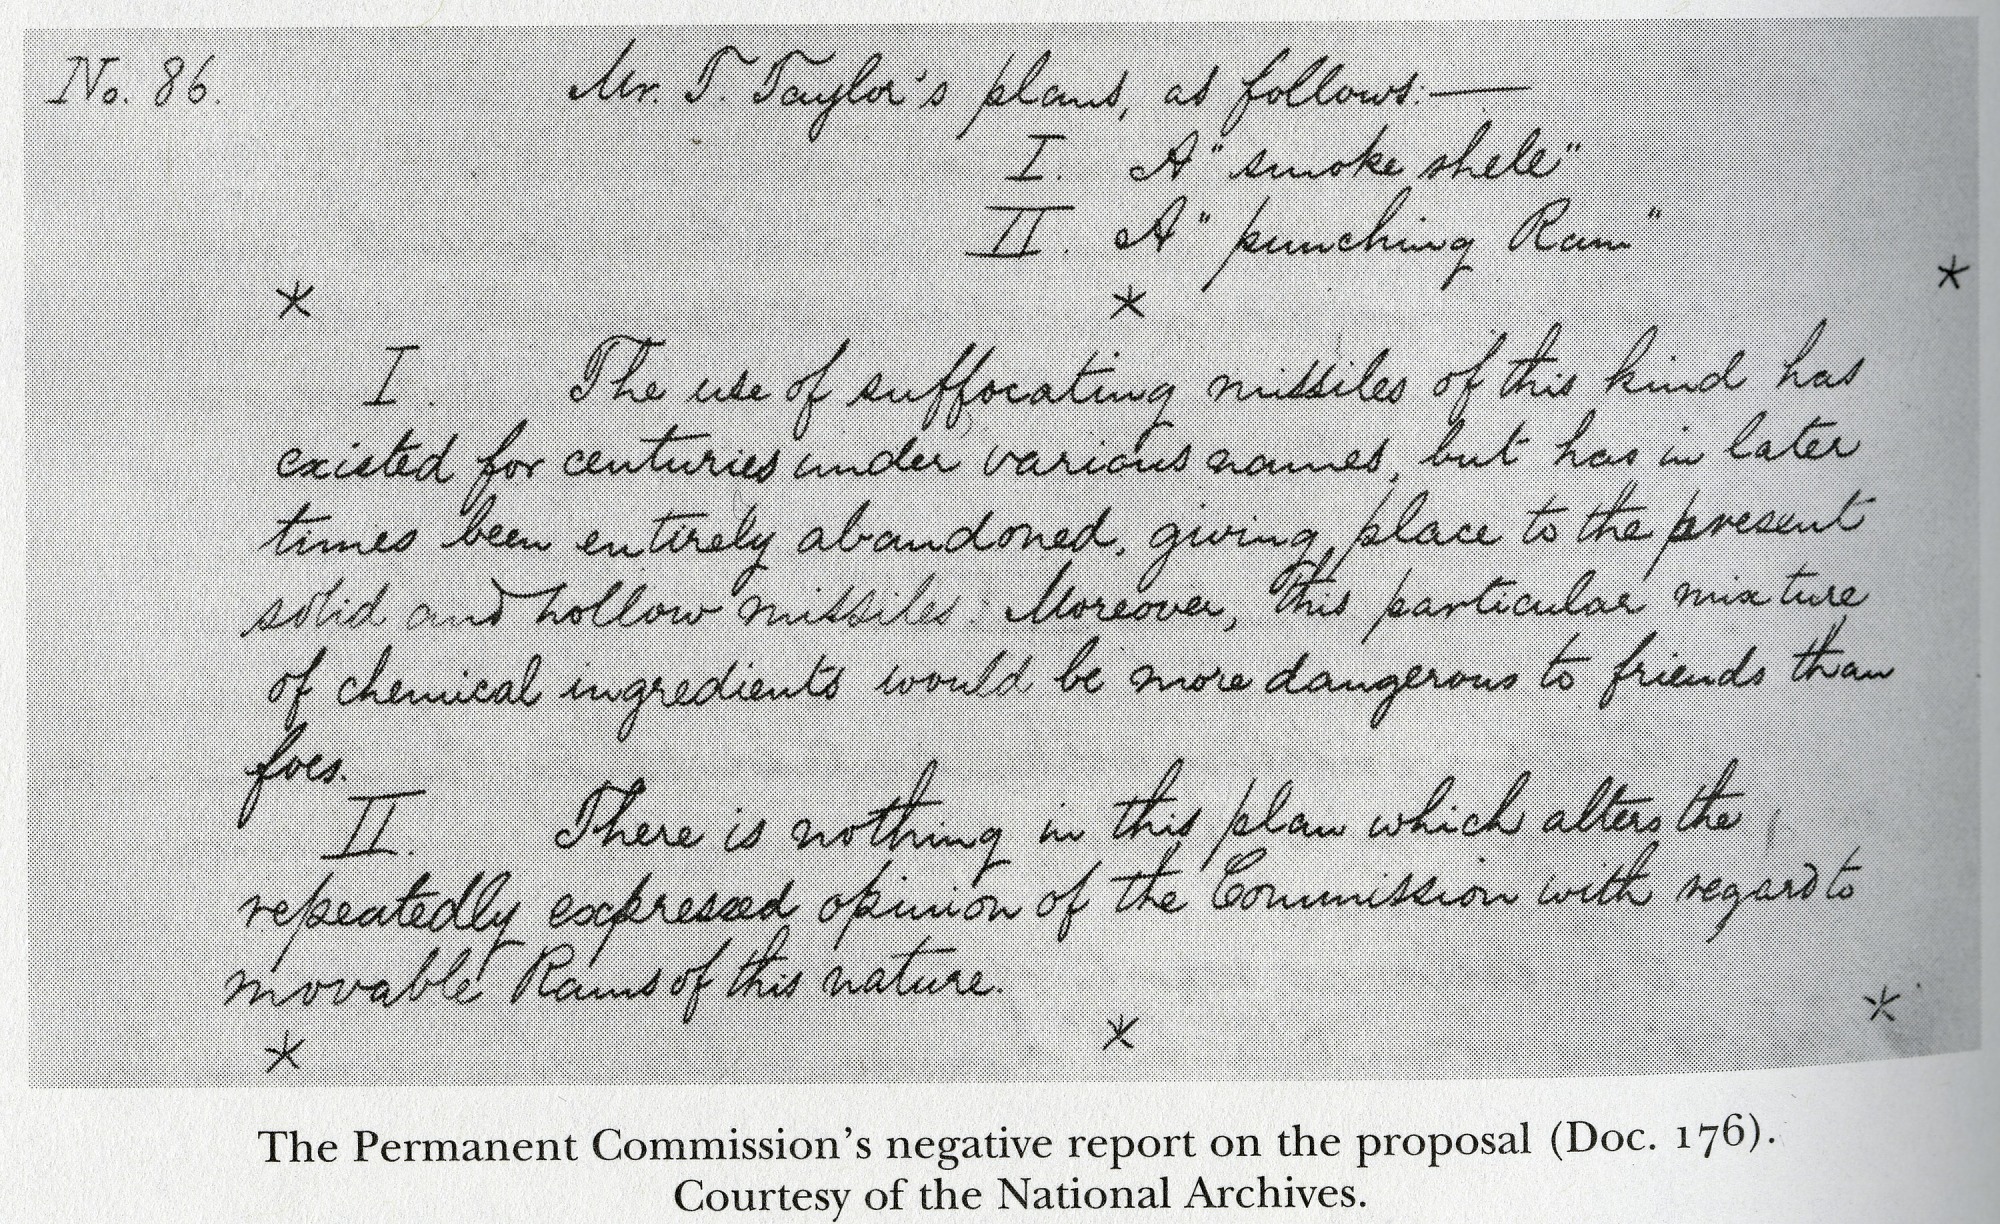 No. 86. Mr. T. Taylor's plans, as follows:—
I. A "smoke shell"
II. A "punching Ram"
* * *
I. The use of suffocating missiles of this kind has
existed for centuries under various names, but has in later
times been entirely abandoned, giving place to the present
solid and hollow missiles. Moreover, this particular mixture
of chemical ingredients would be more dangerous to friends than
foes.
II. There is nothing in this plan which alters the
repeatedly expressed opinion of the Commission with regard to
movable Rams of this nature.
* * *
The Permanent Commission's negative report on the proposal (Doc. 176).
Courtesy of the National Archives.